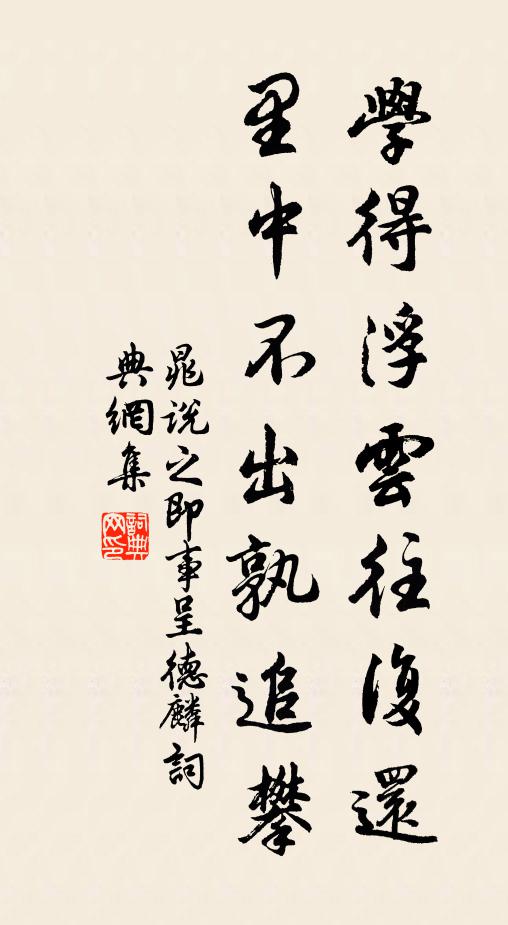 學得浮雲往復還
里中不出孰追攀
晁說之即事呈德麟詞
典網集
詞典網印